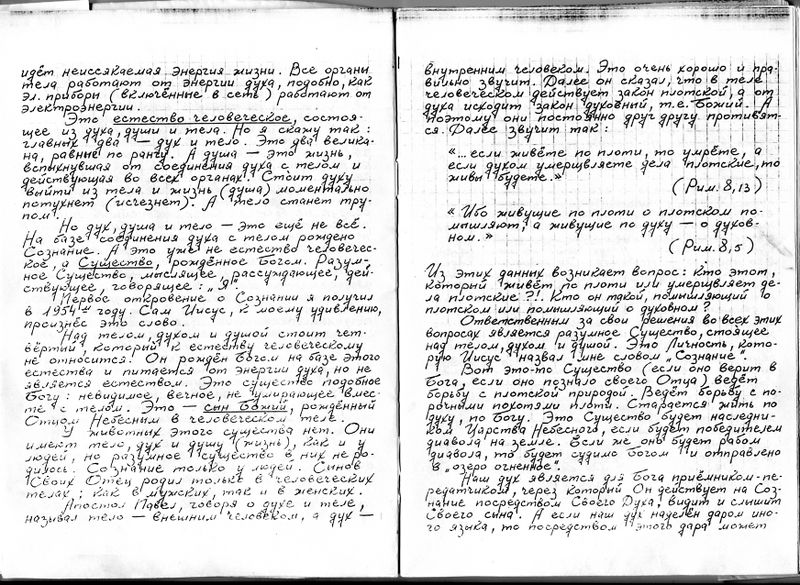 идёт неиссякаемая энергия жизни. Все органы
тела работают от энергии духа, подобно, как
эл. приборы (включённые в сеть) работают от
электроэнергии.
Это естество человеческое, состоя-
щее из духа, души и тела. Но я скажу так:
главных два — дух и тело. Это два велика-
на, равные по рангу. А душа — это жизнь,
вспыхнувшая от соединения духа с телом и
действующая во всех органах. Стоит духу
выйти из тела и жизнь (душа) моментально
потухнет (исчезнет). А тело станет тру-
пом.
Но дух, душа и тело — это ещё не всё.
На базе соединения духа с телом рождено
Сознание. А это уже не естество человечес-
кое, а Существо, рождённое Богом. Разум-
ное Существо, мыслящее, рассуждающее, дей-
ствующее, говорящее: „Я".
Первое откровение о Сознании я получил
в 1954 году. Сам Иисус, к моему удивлению,
произнёс это слово.
Над телом, духом и душой стоит чет-
вёртый, который к естеству человеческому
не относится. Он рождён Богом на базе этого
естества и питается от энергии духа, но не
является естеством. Это существо подобное
Богу: невидимое, вечное, не умирающее вмес-
те с телом. Это — сын Божий, рождённый
Отцом Небесным в человеческом теле.
У животных этого существа нет. Они
имеют тело, дух и душу (жизнь), как и у
людей, но разумное существо в них не ро-
дилось. Сознание только у людей. Сынов
Своих Отец родил только в человеческих
телах; как в мужских, так и в женских.
Апостол Павел, говоря о духе и теле,
называл тело — внешним человеком, а дух —
внутренним человеком. Это очень хорошо и пра-
вильно звучит. Далее он сказал, что в теле
человеческом действует закон плотской, а от
духа исходит закон духовный, т.е. Божий. А
поэтому они постоянно друг другу противят-
ся. Далее звучит так:
«...если живёте по плоти, то умрёте, а
если духом умерщвляете дела плотские, то
живы будете.»
(Рим. 8,13)
«Ибо живущие по плоти о плотском по-
мышляют, а живущие по духу — о духов-
ном.»
(Рим. 8,5)
Из этих данных возникает вопрос: кто этот,
который живёт по плоти или умерщвляет де-
ла плотские?!. Кто он такой, помышляющий о
плотском или помышляющий о духовном?
Ответственным за свои решения во всех этих
вопросах является разумное Существо, стоящее
над телом, духом и душой. Это Личность, кото-
рую Иисус назвал мне словом „Сознание".
Вот это-то Существо (если оно верит в
Бога, если оно познало своего Отца) ведёт
борьбу с плотской природой. Ведёт борьбу с по-
рочными похотями плоти. Старается жить по
духу, по Богу. Это Существо будет наследни-
ком Царства Небесного, если будет победителем
диавола на земле. Если же оно будет рабом
диавола, то будет судимо Богом и отправлено
в „озеро огненное".
Наш дух является для Бога приёмником-пе-
редатчиком, через который Он действует на Соз-
нание посредством Своего Духа, видит и слышит
Своего сына. А если наш дух наделён даром ино-
го языка, то посредством этого дара может